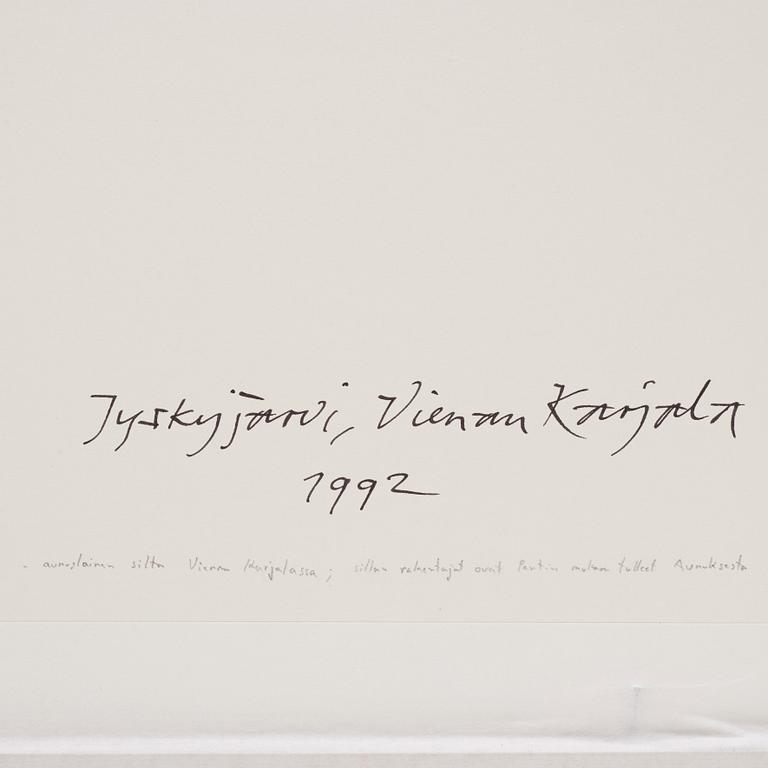 Jyskyjärvi, Vienan Karjala
1992
- aunuslainen silta Vienan Karjalassa ; sillan rakentajat ovat Pentin mukaan tulleet Aunuksesta